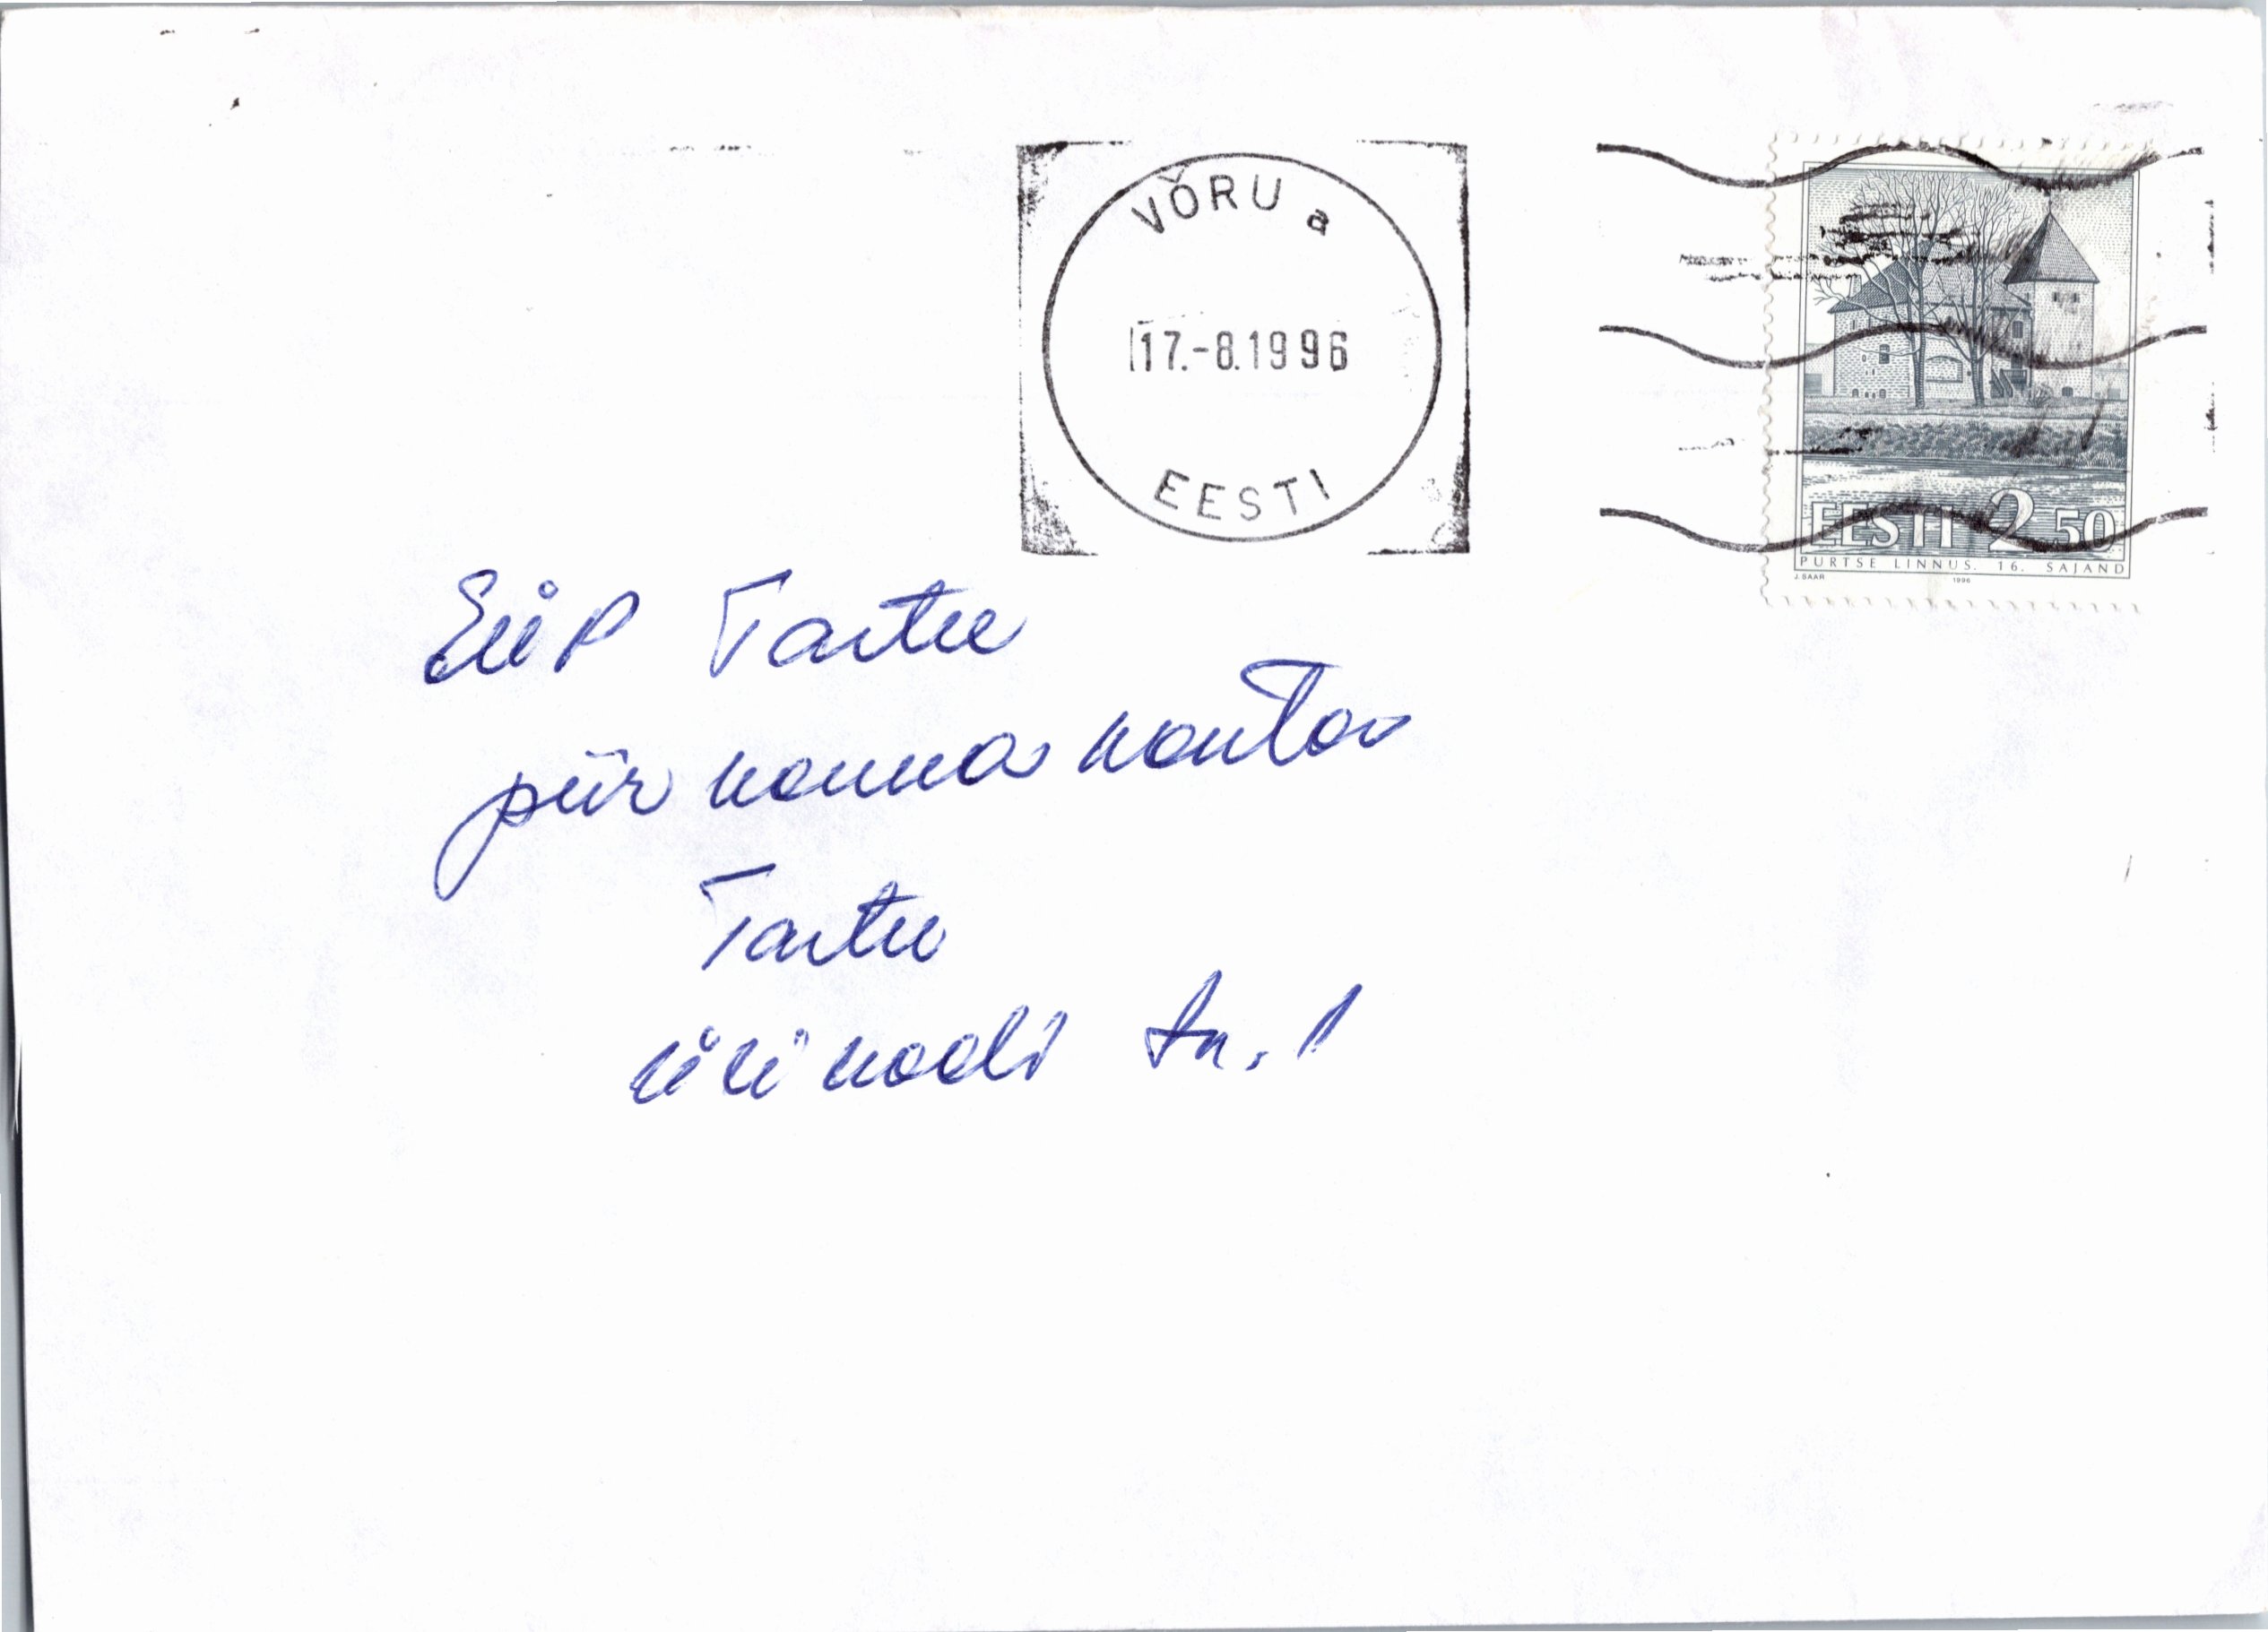 VÕRU a
17.-8.1996
EESTI
EESTI 2.50
PURTSE LINNUS. 16. SAJAND
J.SAAR 1996
EÜP Tartu
piirkonna kontor
Tartu
Ülikooli tn. 1